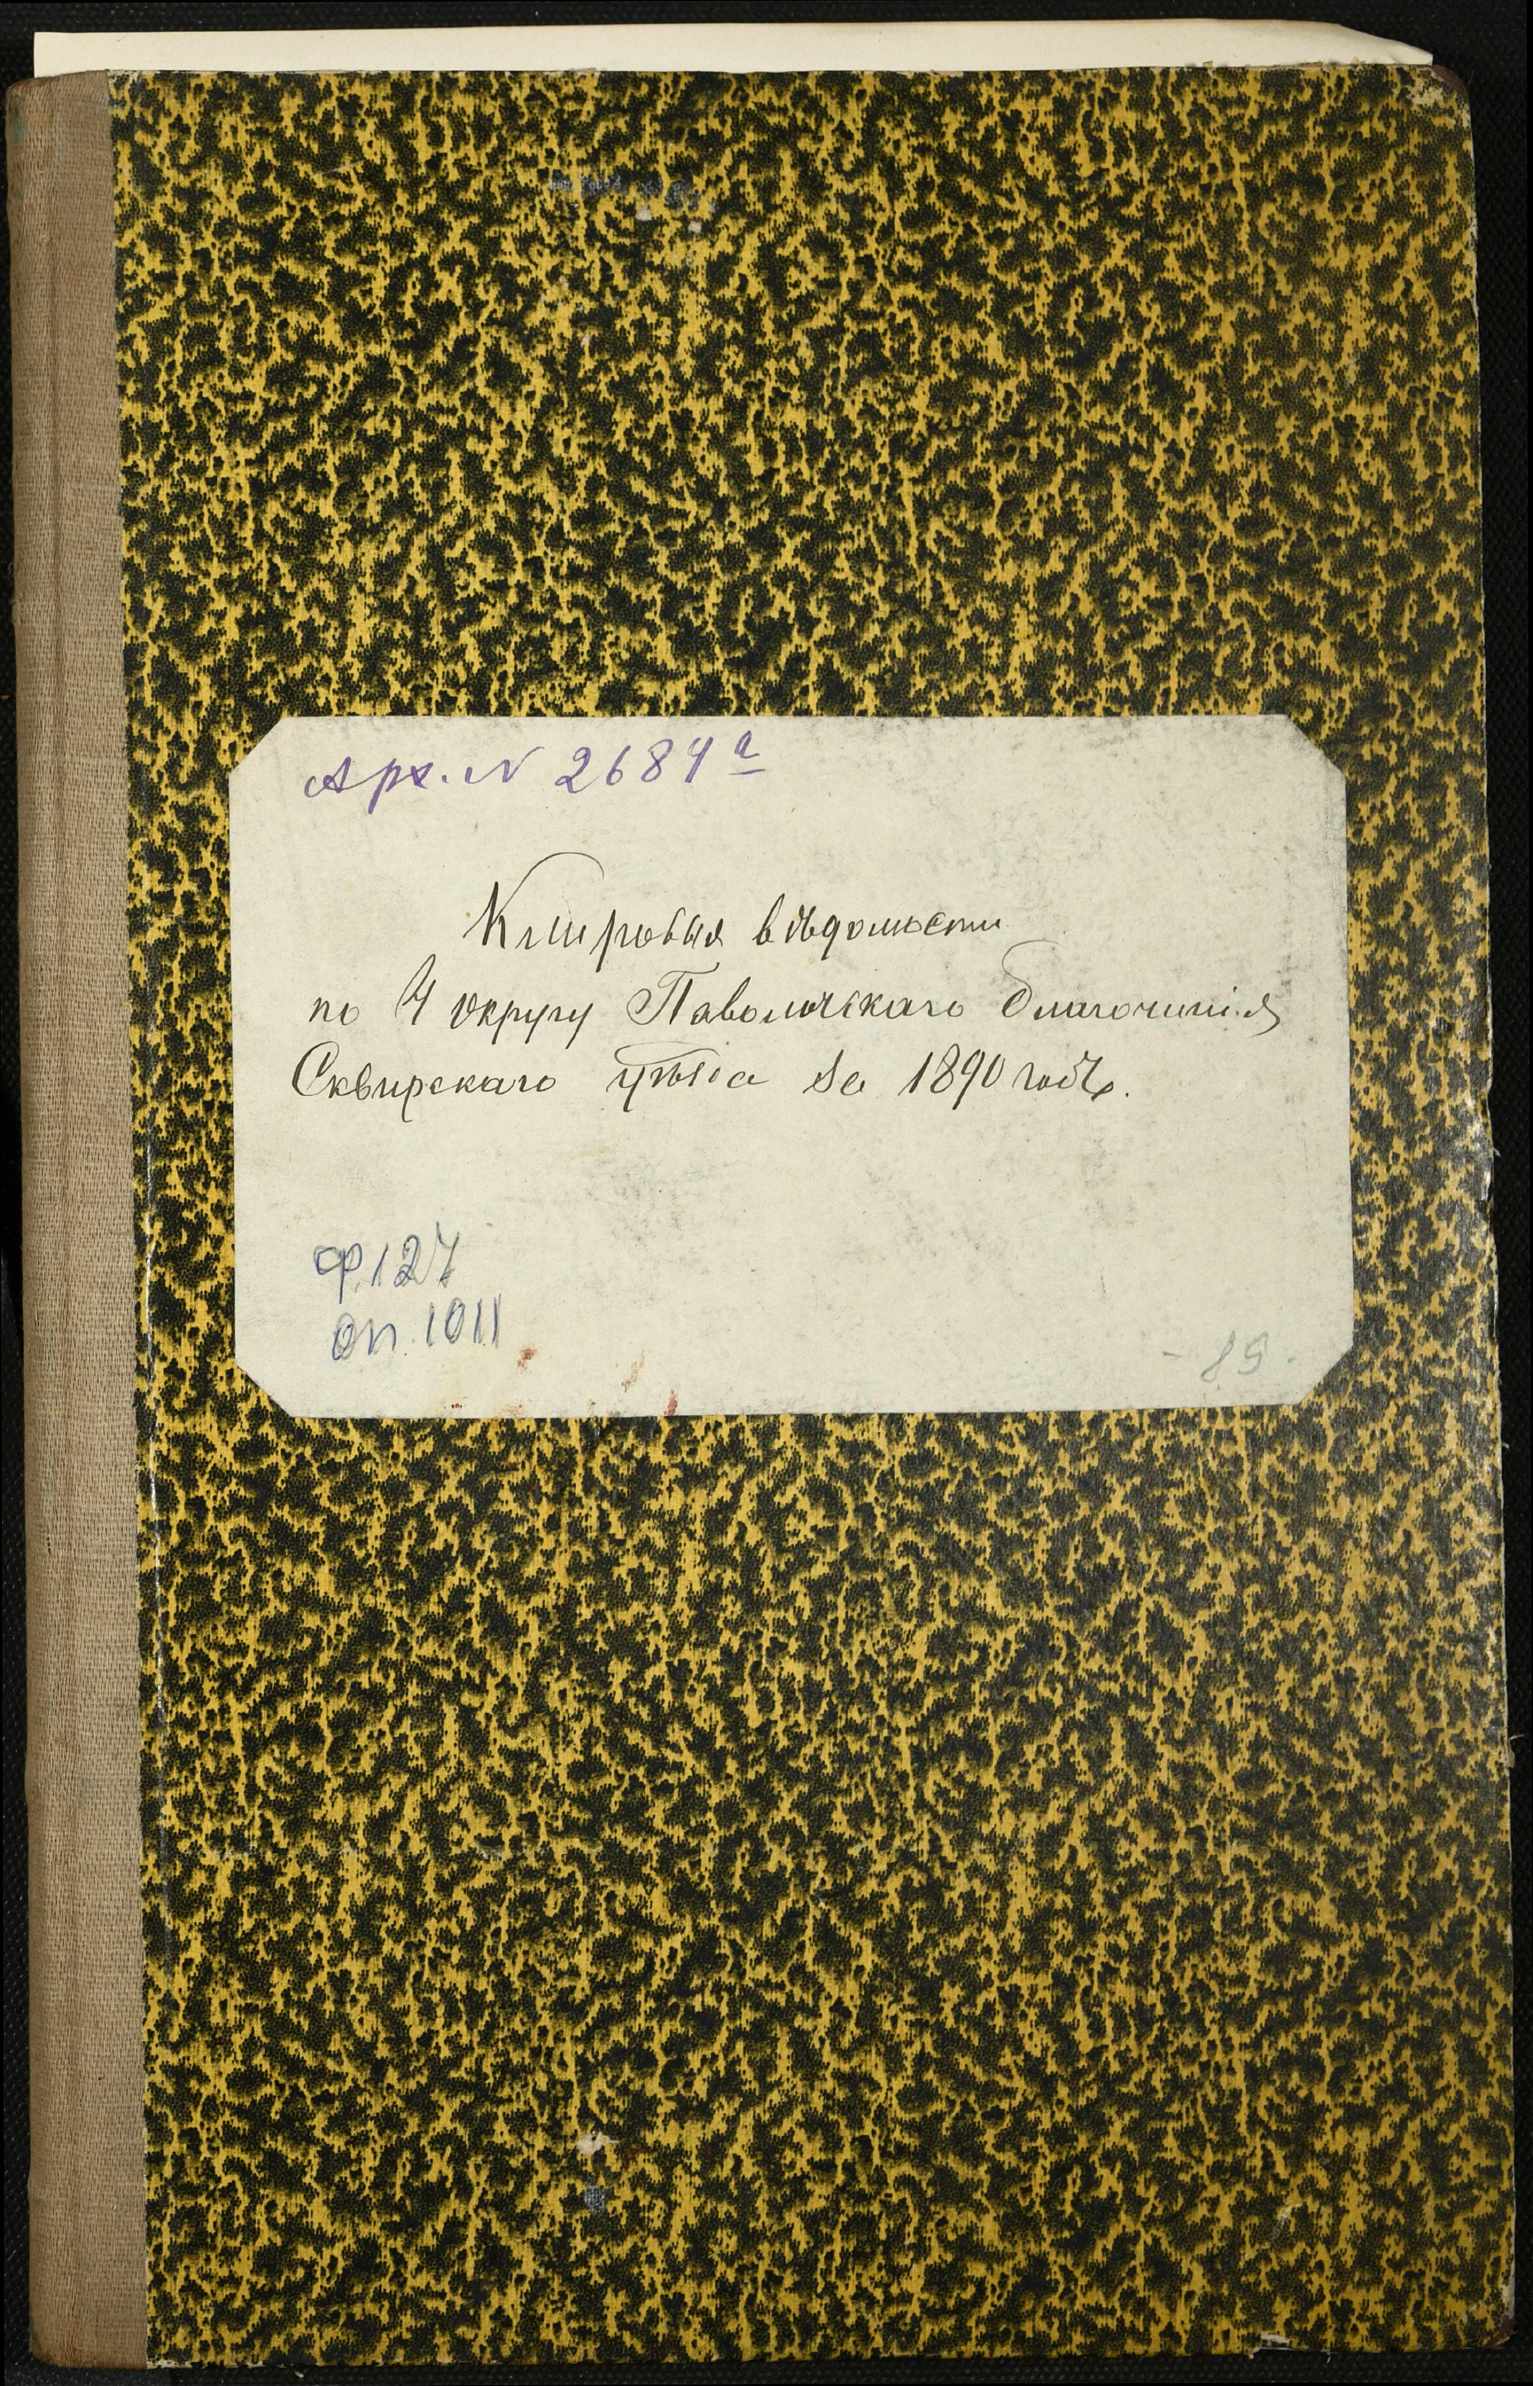 Арх. N 2684 а
Клировыя вѣдомости
по 4 округу Паволочскаго благочинія
Сквирскаго уѣзда за 1890 годъ.
ф. 127
оп. 1011
- 89 -